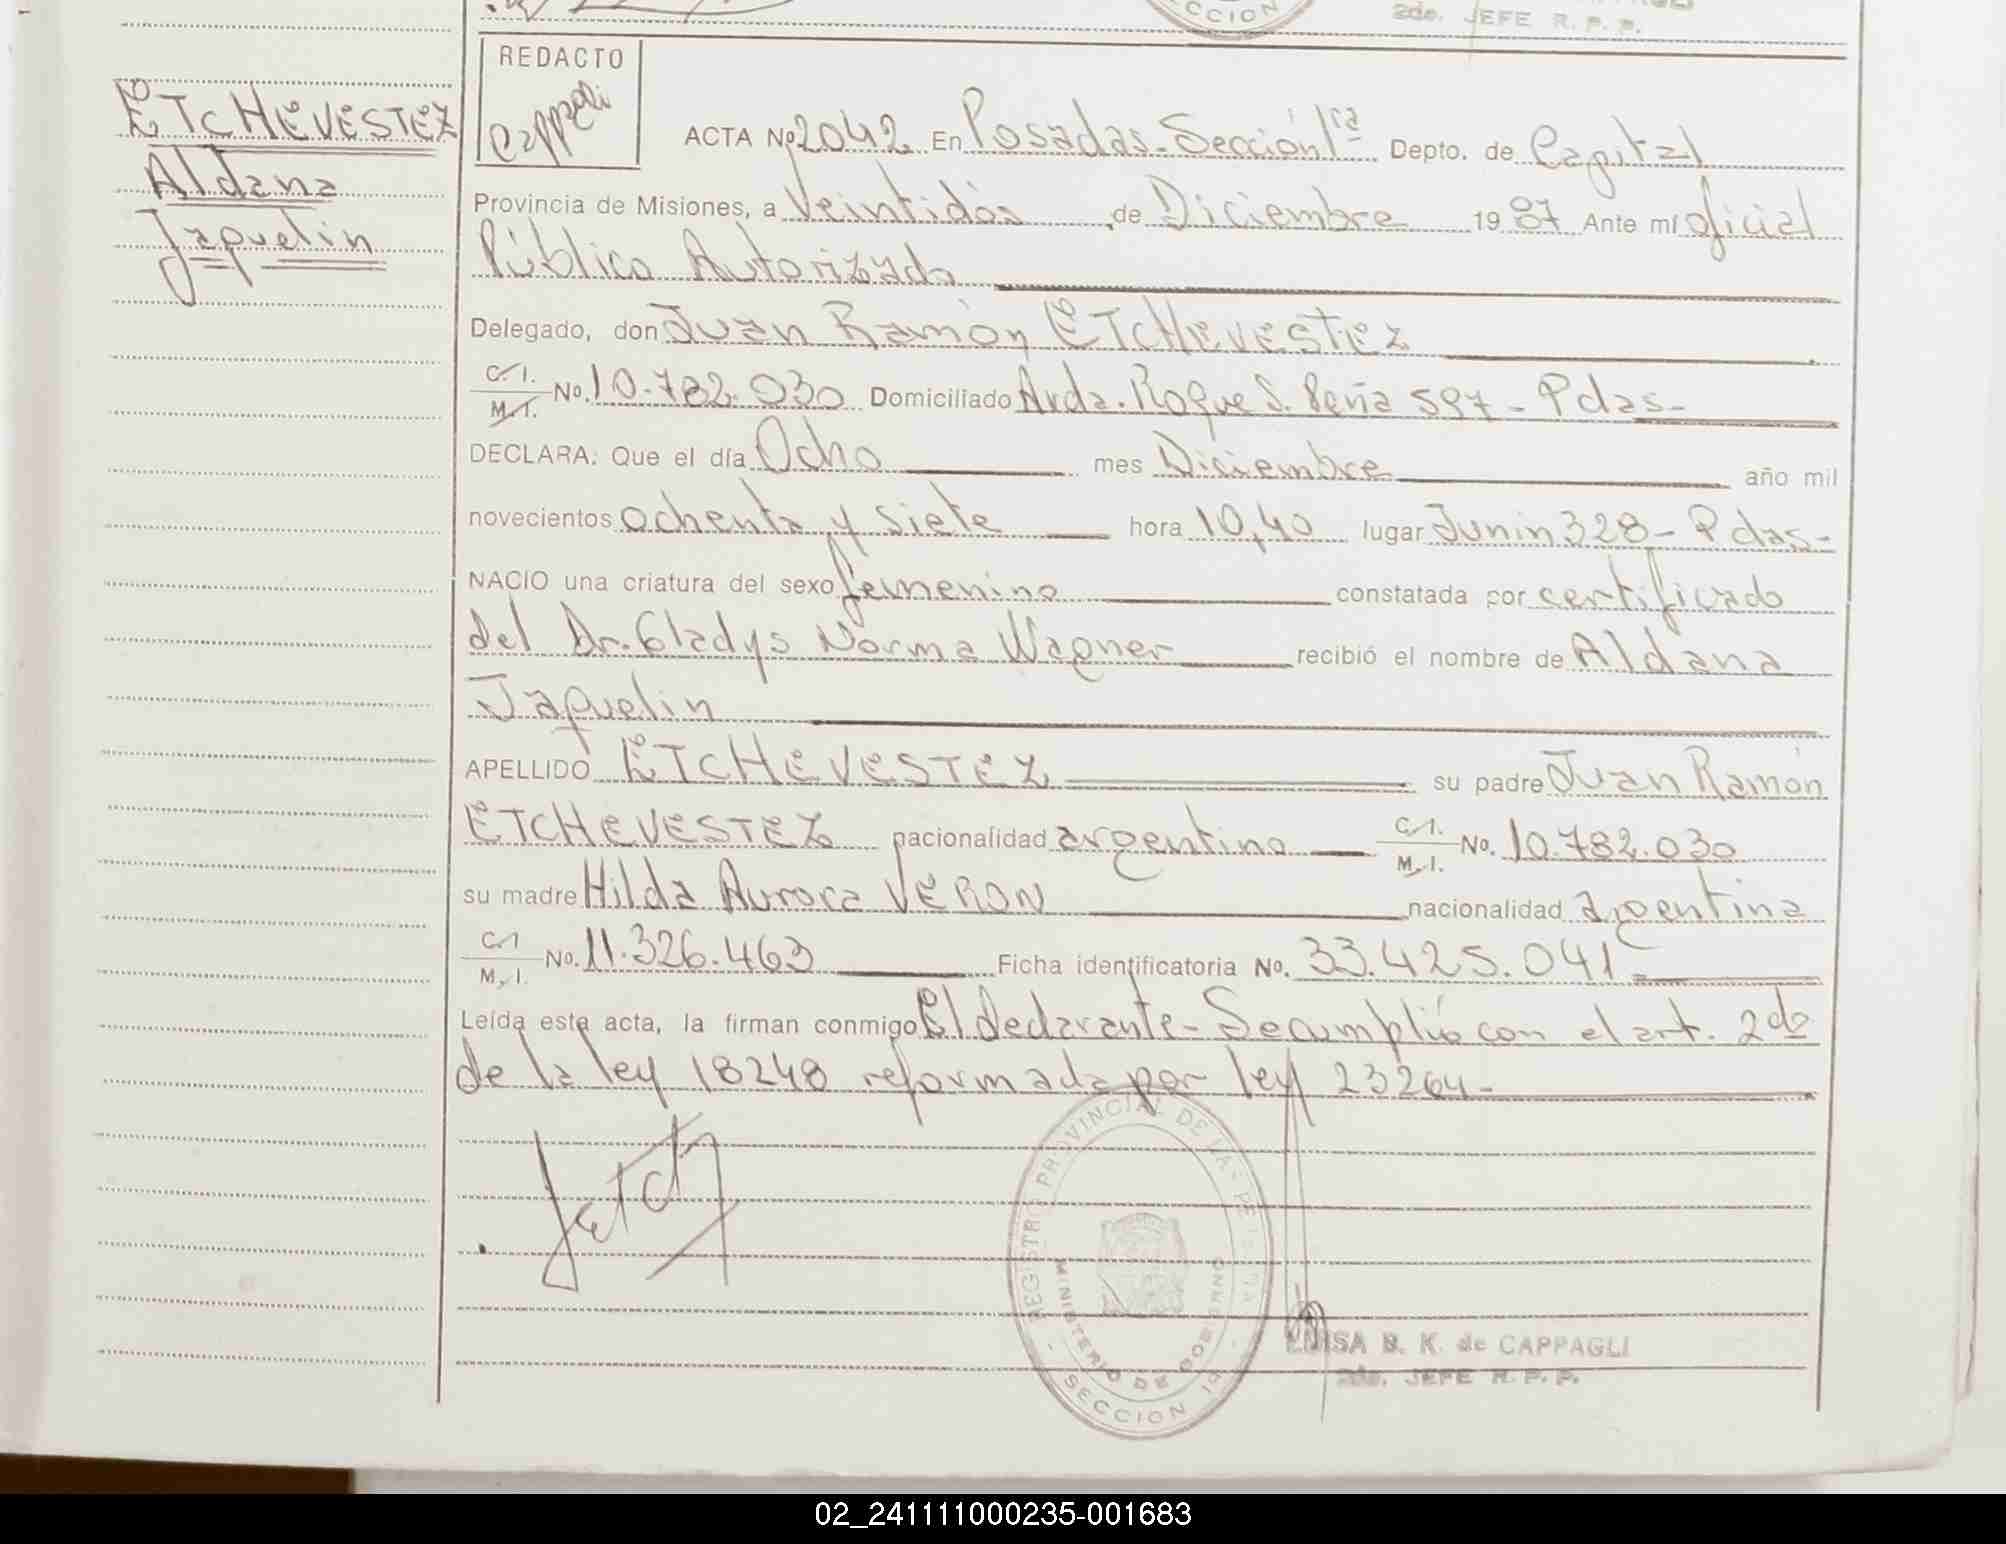 CCION
2do. JEFE R. P. P.
REDACTO
Cappagli
ETCHEVESTEZ
Aldana
Jaquelin
ACTA Nº 2042 En Posadas-Sección 1ra Depto. de Capital
Provincia de Misiones, a Veintidós de Diciembre 1987 Ante mí oficial
Público Autorizado
Delegado, don Juan Ramón ETCHEVESTEZ
C.I. M.I. Nº. 10.782.030 Domiciliado Avda. Roque S. Peña 597 - Pdas-
DECLARA: Que el día Ocho mes Diciembre año mil
novecientos ochenta y siete hora 10,40 lugar Junin 328 - Pdas-
NACIO una criatura del sexo femenino constatada por certificado
del Dr. Gladys Norma Wagner recibió el nombre de Aldana
Jaquelin
APELLIDO ETCHEVESTEZ su padre Juan Ramón
ETCHEVESTEZ nacionalidad argentino C.I. M.I. Nº. 10.782.030
su madre Hilda Aurora VERON nacionalidad argentina
C.I M.I. Nº. 11.326.463 Ficha identificatoria Nº. 33.425.041-
Leída esta acta, la firman conmigo El declarante - Se cumplió con el art. 2do
de la ley 18248 reformada por ley 23264-
REGISTRO PROVINCIAL DE LAS PERSONAS
MINISTERIO DE GOBIERNO
SECCION 1ra
LUISA B. K. de CAPPAGLI
2do. JEFE R. P. P.
02_241111000235-001683